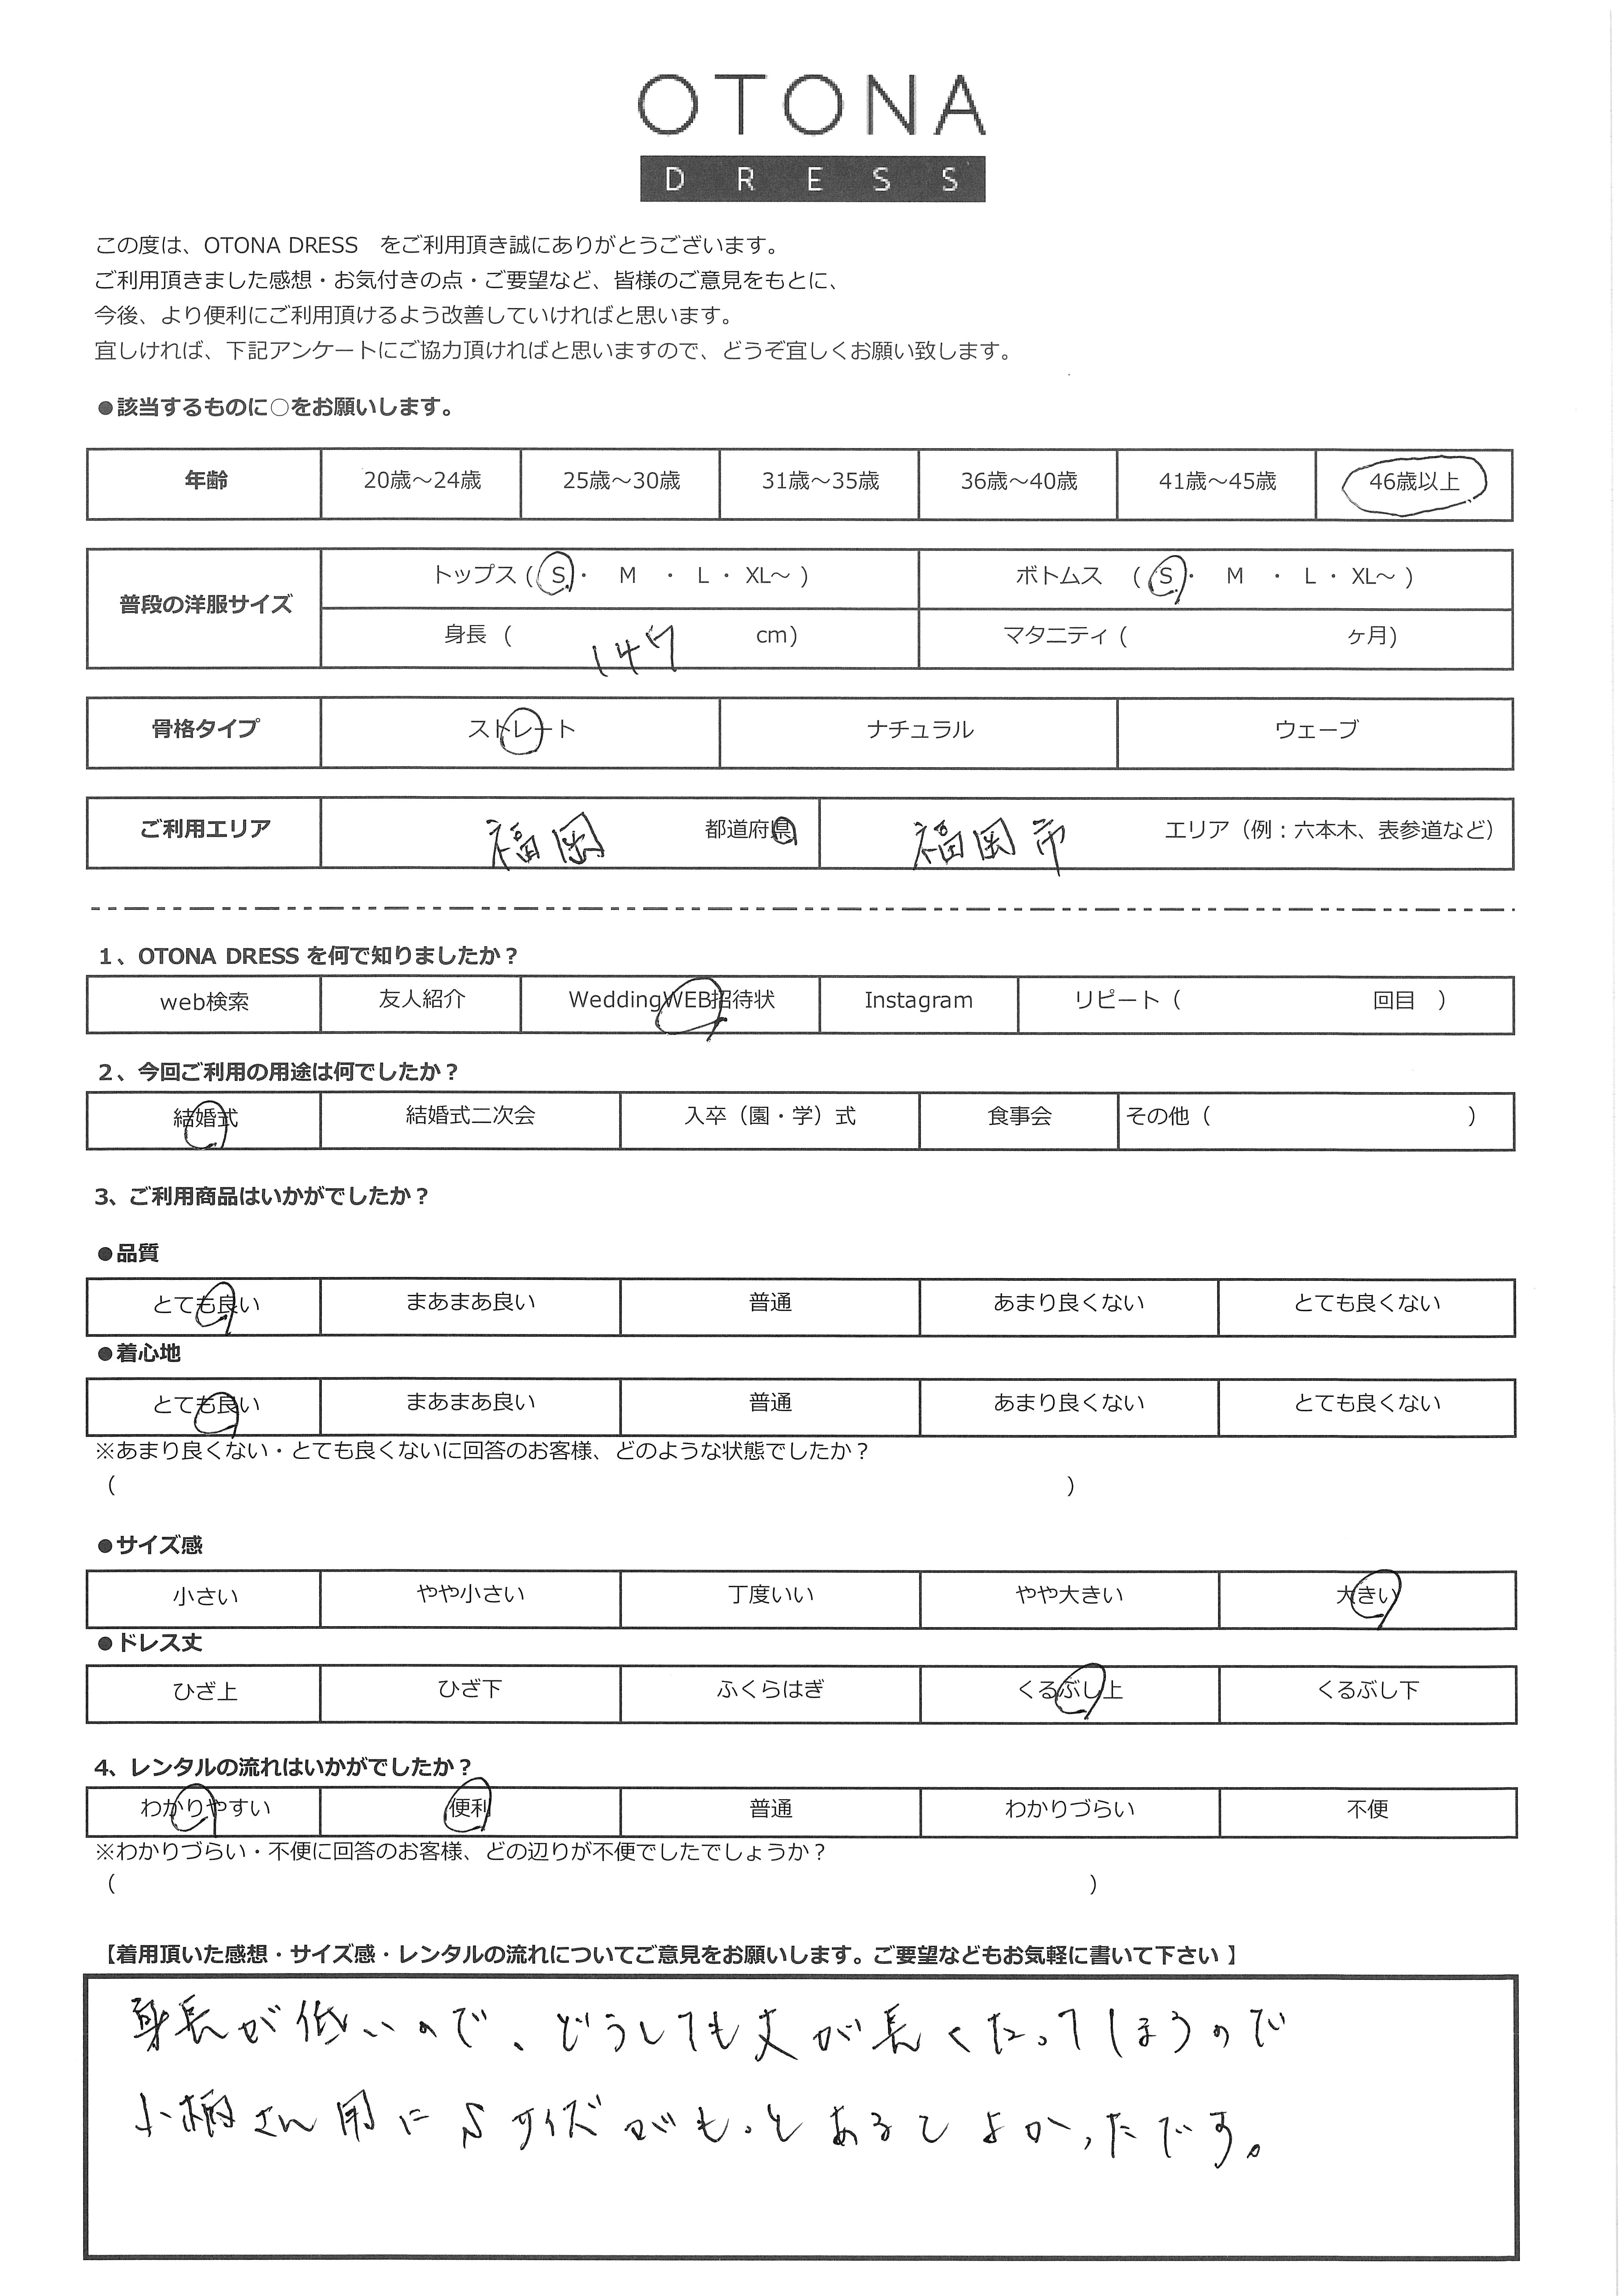 OTONA
DRESS
この度は、OTONA DRESS をご利用頂き誠にありがとうございます。
ご利用頂きました感想・お気付きの点・ご要望など、皆様のご意見をもとに、
今後、より便利にご利用頂けるよう改善していければと思います。
宜しければ、下記アンケートにご協力頂ければと思いますので、どうぞ宜しくお願い致します。
●該当するものに○をお願いします。
年齢 20歳～24歳 25歳～30歳 31歳～35歳 36歳～40歳 41歳～45歳 46歳以上
普段の洋服サイズ トップス ( S ・ M ・ L ・ XL～ ) ボトムス ( S ・ M ・ L ・ XL～ )
身長 ( 147 cm) マタニティ ( ヶ月)
骨格タイプ ストレート ナチュラル ウェーブ
ご利用エリア 福岡 都道府県 福岡市 エリア（例：六本木、表参道など）
1、OTONA DRESS を何で知りましたか？
web検索 友人紹介 WeddingWEB招待状 Instagram リピート（ 回目 ）
2、今回ご利用の用途は何でしたか？
結婚式 結婚式二次会 入卒（園・学）式 食事会 その他（ ）
3、ご利用商品はいかがでしたか？
●品質
とても良い まあまあ良い 普通 あまり良くない とても良くない
●着心地
とても良い まあまあ良い 普通 あまり良くない とても良くない
※あまり良くない・とても良くないに回答のお客様、どのような状態でしたか？
（ ）
●サイズ感
小さい やや小さい 丁度いい やや大きい 大きい
●ドレス丈
ひざ上 ひざ下 ふくらはぎ くるぶし上 くるぶし下
4、レンタルの流れはいかがでしたか？
わかりやすい 便利 普通 わかりづらい 不便
※わかりづらい・不便に回答のお客様、どの辺りが不便でしたでしょうか？
（ ）
【着用頂いた感想・サイズ感・レンタルの流れについてご意見をお願いします。ご要望などもお気軽に書いて下さい 】
身長が低いので、どうしても丈が長くなってしまうので
小柄さん用にSサイズがもっとあるとよかったです。